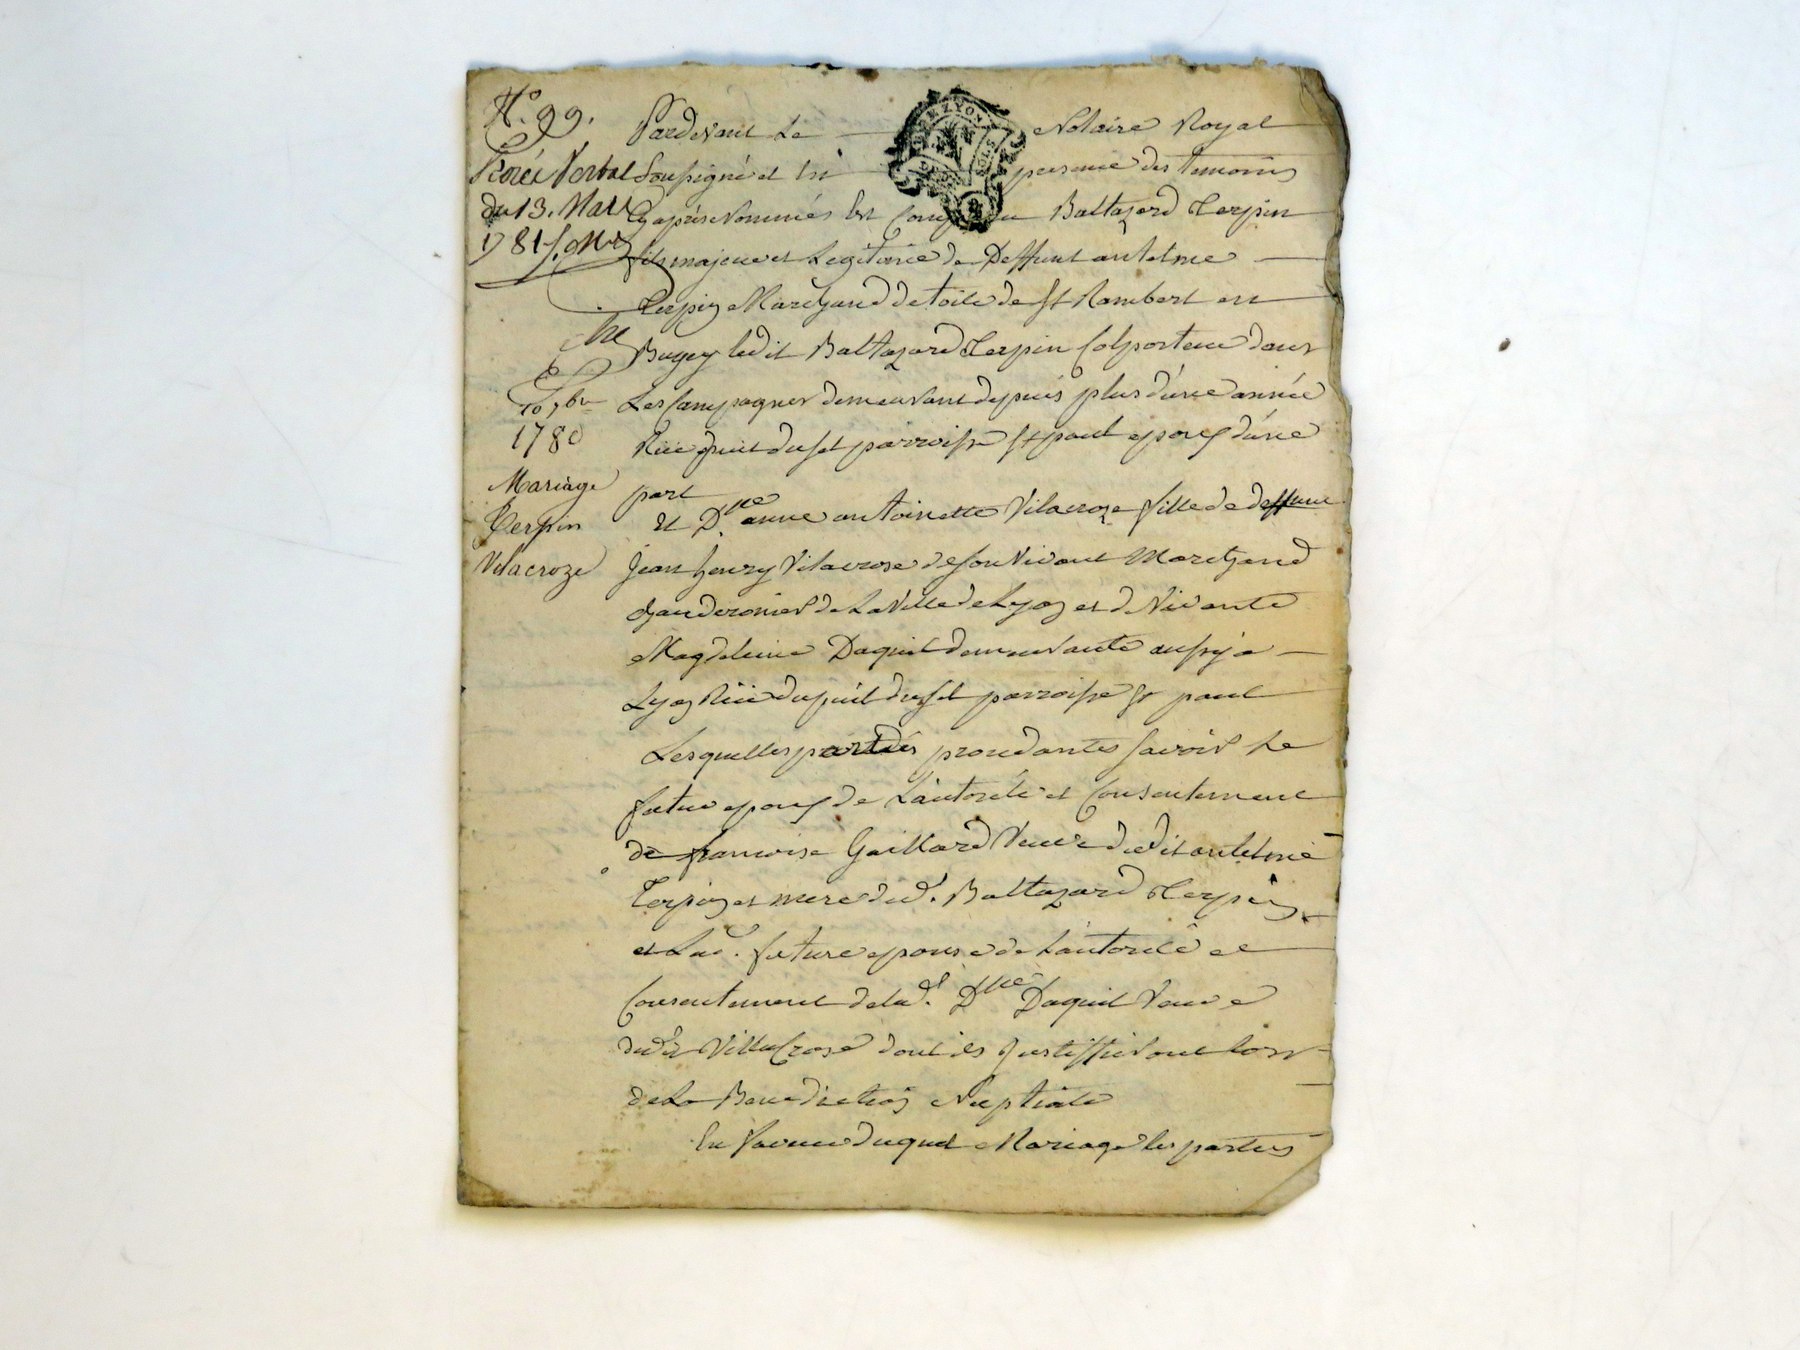 N.° 99.
Procés Verbal
du 13. Mars
1781
10 7bre
1780
Mariage
Terpin
Vilacroze
Pardevant Le Notaire Royal
Soussigné et En presence des temoins
Cy aprés Nommés Est Comparu Baltazard Terpin
fils majeur et Legitime de Deffunt antelme
Terpin Marchand de toile de St Rambert en
Bugey ledit Baltazard Terpin Colporteur dans
Les Campagnes demeurant depuis plus d'une année
Rüe puit du sel parroisse St paul epoux d'une
part
Et Dlle anne antoinette Vilacroze fille de deffunt
Jean henry Vilacrose de son Vivant Marchand
chauderonier de La Ville de Lyon et de Vivante
Magdeleine Daquit demeurante aussy a
Lyon Rüe du puit du sel parroisse St paul
Lesquelles parties procedantes savoir Le
futur epoux de L'autorité et Consentement
de francoise Gaillard Veuve dudit antelme
Terpin et mere dud. Baltazard Terpin
et Lad. future epouse de L'autorité et
Consentement de lad. Dlle Daquit Veuve
dudit Villacrose dont ils Justiffieront lors
de La Benediction Nuptiale
En faveur duquel Mariage les parties